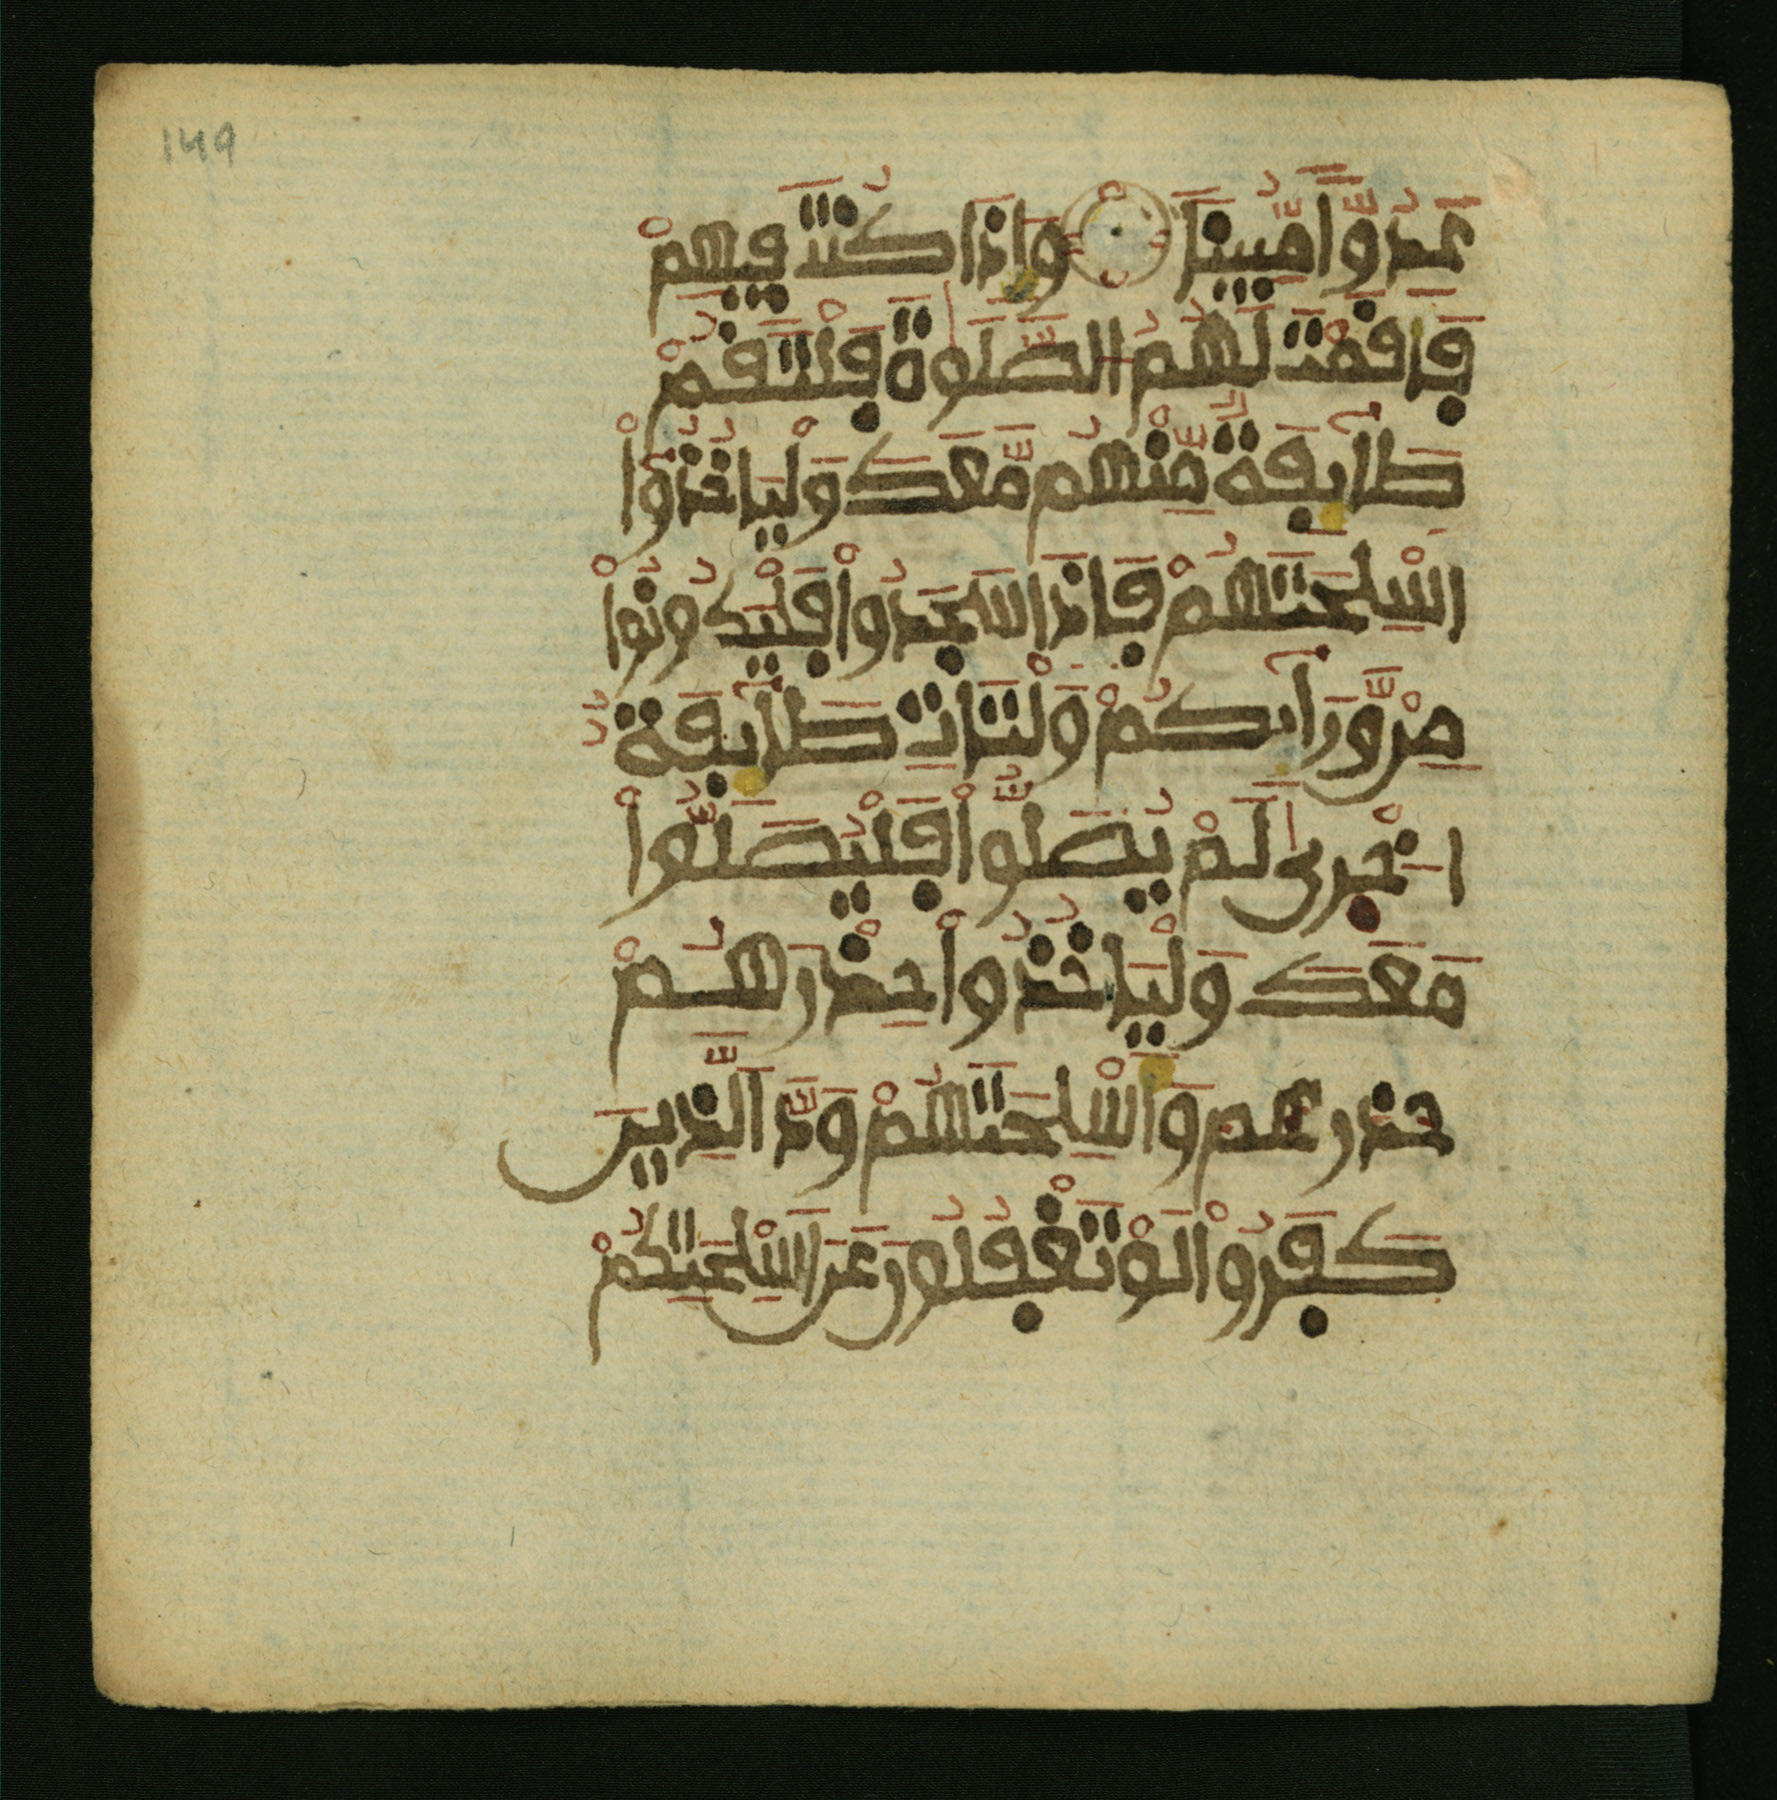 149
عَدُوّٗا مُّبِينٗا وَإِذَا كُنتَ فِيهِمْ
فَأَقَمْتَ لَهُمُ الصَّلَوٰةَ فَلْتَقُمْ
طَآئِفَةٌ مِّنْهُم مَّعَكَ وَلْيَاخُذُوٓاْ
أَسْلِحَتَهُمْ فَإِذَا سَجَدُواْ فَلْيَكُونُواْ
مِنْ وَّرَآئِكُمْ وَلْتَاتِ طَآئِفَةٌ
اُخْر۪ىٰ لَمْ يُصَلُّواْ فَلْيُصَلُّواْ
مَعَكَ وَلْيَاخُذُواْ حِذْرَهُمْ
حذرهم وَأَسْلِحَتَهُمْ وَدَّ الَّذِينَ
كَفَرُواْ لَوْ تَغْفُلُونَ عَنَ اَسْلِحَتِكُمْ